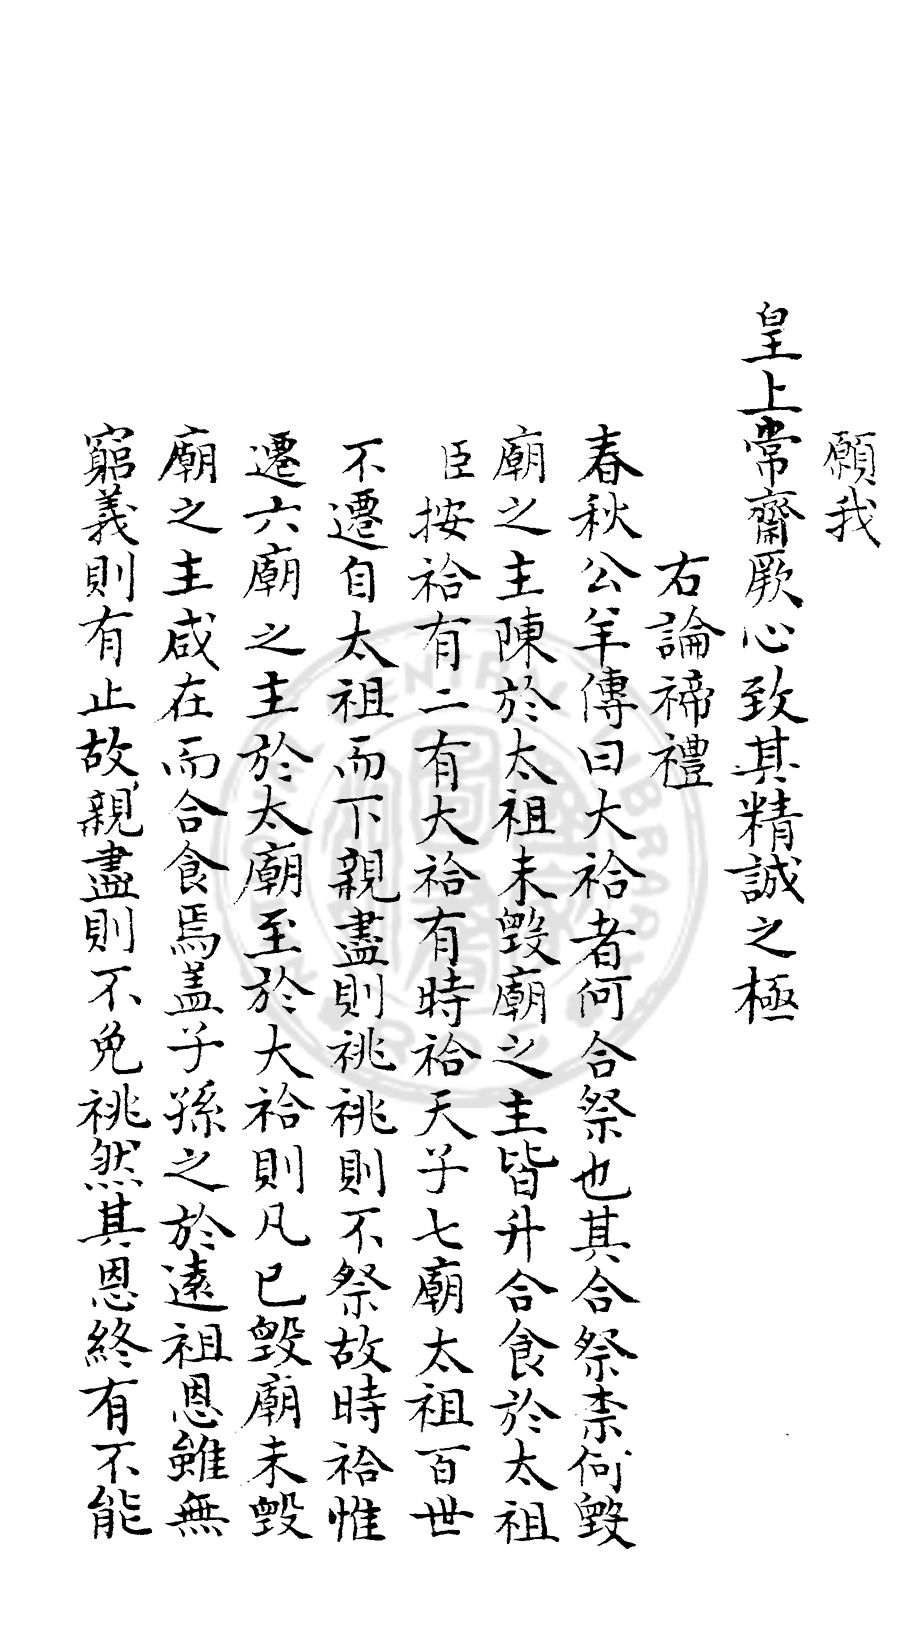 願我
皇上常齋厥心致其精誠之極
右論禘禮
春秋公羊傳曰大祫者何合祭也其合祭柰何毀
廟之主陳於太祖未毀廟之主皆升合食於太祖
臣按祫有二有大祫有時祫天子七廟太祖百世
不遷自太祖而下親盡則祧祧則不祭故時祫惟
遷六廟之主於太廟至於大祫則凡已毀廟未毀
廟之主咸在而合食焉盖子孫之於遠祖恩雖無
窮義則有止故親盡則不免祧然其恩終有不能